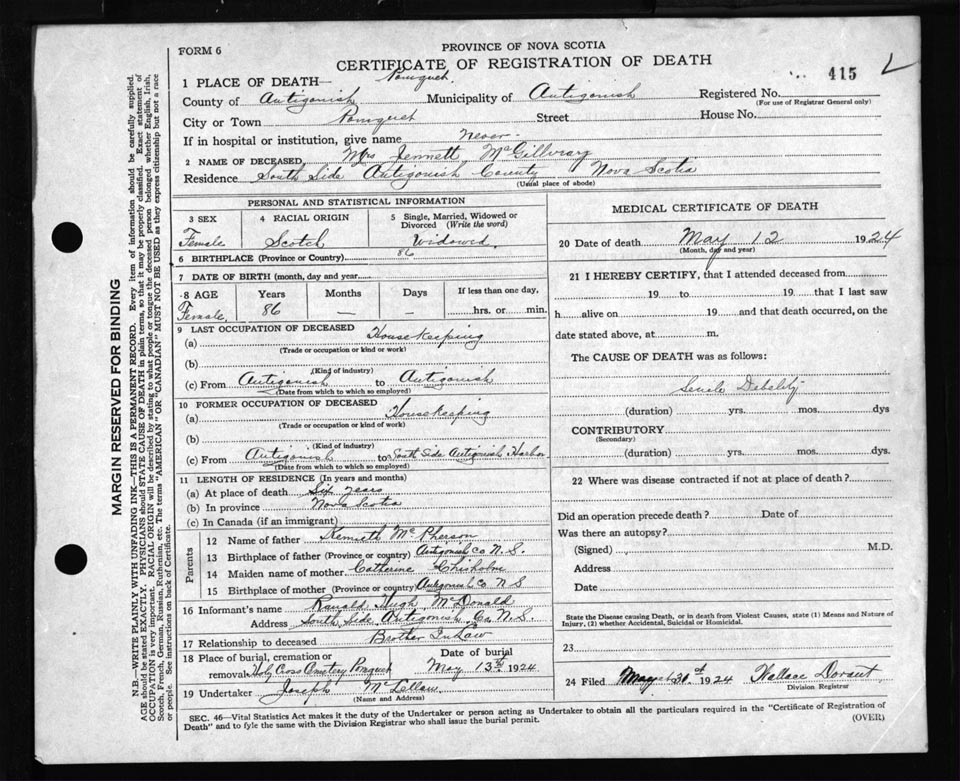 PROVINCE OF NOVA SCOTIA
FORM 6
CERTIFICATE OF REGISTRATION OF DEATH
415
1 PLACE OF DEATH— Pomquet
County of Antigonish Municipality of Antigonish Registered No.
(For use of Registrar General only)
City or Town Pomquet Street House No.
If in hospital or institution, give name never
2 NAME OF DECEASED, Mrs Jennett McGillvray
Residence South Side Antigonish County Nova Scotia
(Usual place of abode)
PERSONAL AND STATISTICAL INFORMATION
3 SEX 4 RACIAL ORIGIN 5 Single, Married, Widowed or Divorced (Write the word)
Female Scotch Widowed
6 BIRTHPLACE (Province or Country) 86
7 DATE OF BIRTH (month, day and year)
8 AGE Years Months Days If less than one day,
Female 86 — — hrs. or min.
9 LAST OCCUPATION OF DECEASED
(a) Housekeeping
(Trade or occupation or kind or work)
(b)
(Kind of industry)
(c) From Antigonish to Antigonish
(Date from which to which so employed)
10 FORMER OCCUPATION OF DECEASED
(a) Housekeeping
(Trade or occupation or kind of work)
(b)
(Kind of industry)
(c) From Antigonish to South Side Antigonish Harbor
(Date from which to which so employed)
11 LENGTH OF RESIDENCE (In years and months)
(a) At place of death Six years
(b) In province Nova Scotia
(c) In Canada (if an immigrant)
Parents
12 Name of father Kenneth McPherson
13 Birthplace of father (Province or country) Antigonish Co N.S.
14 Maiden name of mother Catherine Chisholm
15 Birthplace of mother (Province or country) Antigonish Co N S
16 Informant's name Ranald Hugh McDonald
Address South Side Antigonish Co. N.S.
17 Relationship to deceased Brother In Law
18 Place of burial, cremation or removal Holy Cross Cmetery Pomquet
Date of burial
May 13th 1924
19 Undertaker Joseph McLellan
(Name and Address)
MEDICAL CERTIFICATE OF DEATH
20 Date of death May 12 1924
(Month, day and year)
21 I HEREBY CERTIFY, that I attended deceased from
19 to 19 that I last saw
h alive on 19 and that death occurred, on the
date stated above, at m.
The CAUSE OF DEATH was as follows:
Senile Debelity
(duration) yrs. mos. dys
CONTRIBUTORY
(Secondary)
(duration) yrs. mos. dys.
22 Where was disease contracted if not at place of death?
Did an operation precede death? Date of
Was there an autopsy?
(Signed) M.D.
Address
Date
State the Disease causing Death, or in death from Violent Causes, state (1) Means and Nature of Injury, (2) whether Accidental, Suicidal or Homicidal.
23
24 Filed May 31st 1924 Wallace Dorant
Division Registrar
SEC. 46—Vital Statistics Act makes it the duty of the Undertaker or person acting as Undertaker to obtain all the particulars required in the "Certificate of Registration of
Death" and to fyle the same with the Division Registrar who shall issue the burial permit.
(OVER)
MARGIN RESERVED FOR BINDING
N.B.—WRITE PLAINLY WITH UNFADING INK—THIS IS A PERMANENT RECORD. Every item of information should be carefully supplied.
AGE should be stated EXACTLY. PHYSICIANS should STATE CAUSE OF DEATH in plain terms, so that it may be properly classified. Exact statement of
OCCUPATION is very important. RACIAL ORIGIN will be described by stating to what people or tongue the deceased person belonged whether English, Irish,
Scotch, French, German, Russian, Ruthenian, etc. The terms "AMERICAN" OR "CANADIAN" MUST NOT BE USED as they express citizenship but not a race
or people. See instructions on back of Certificate.